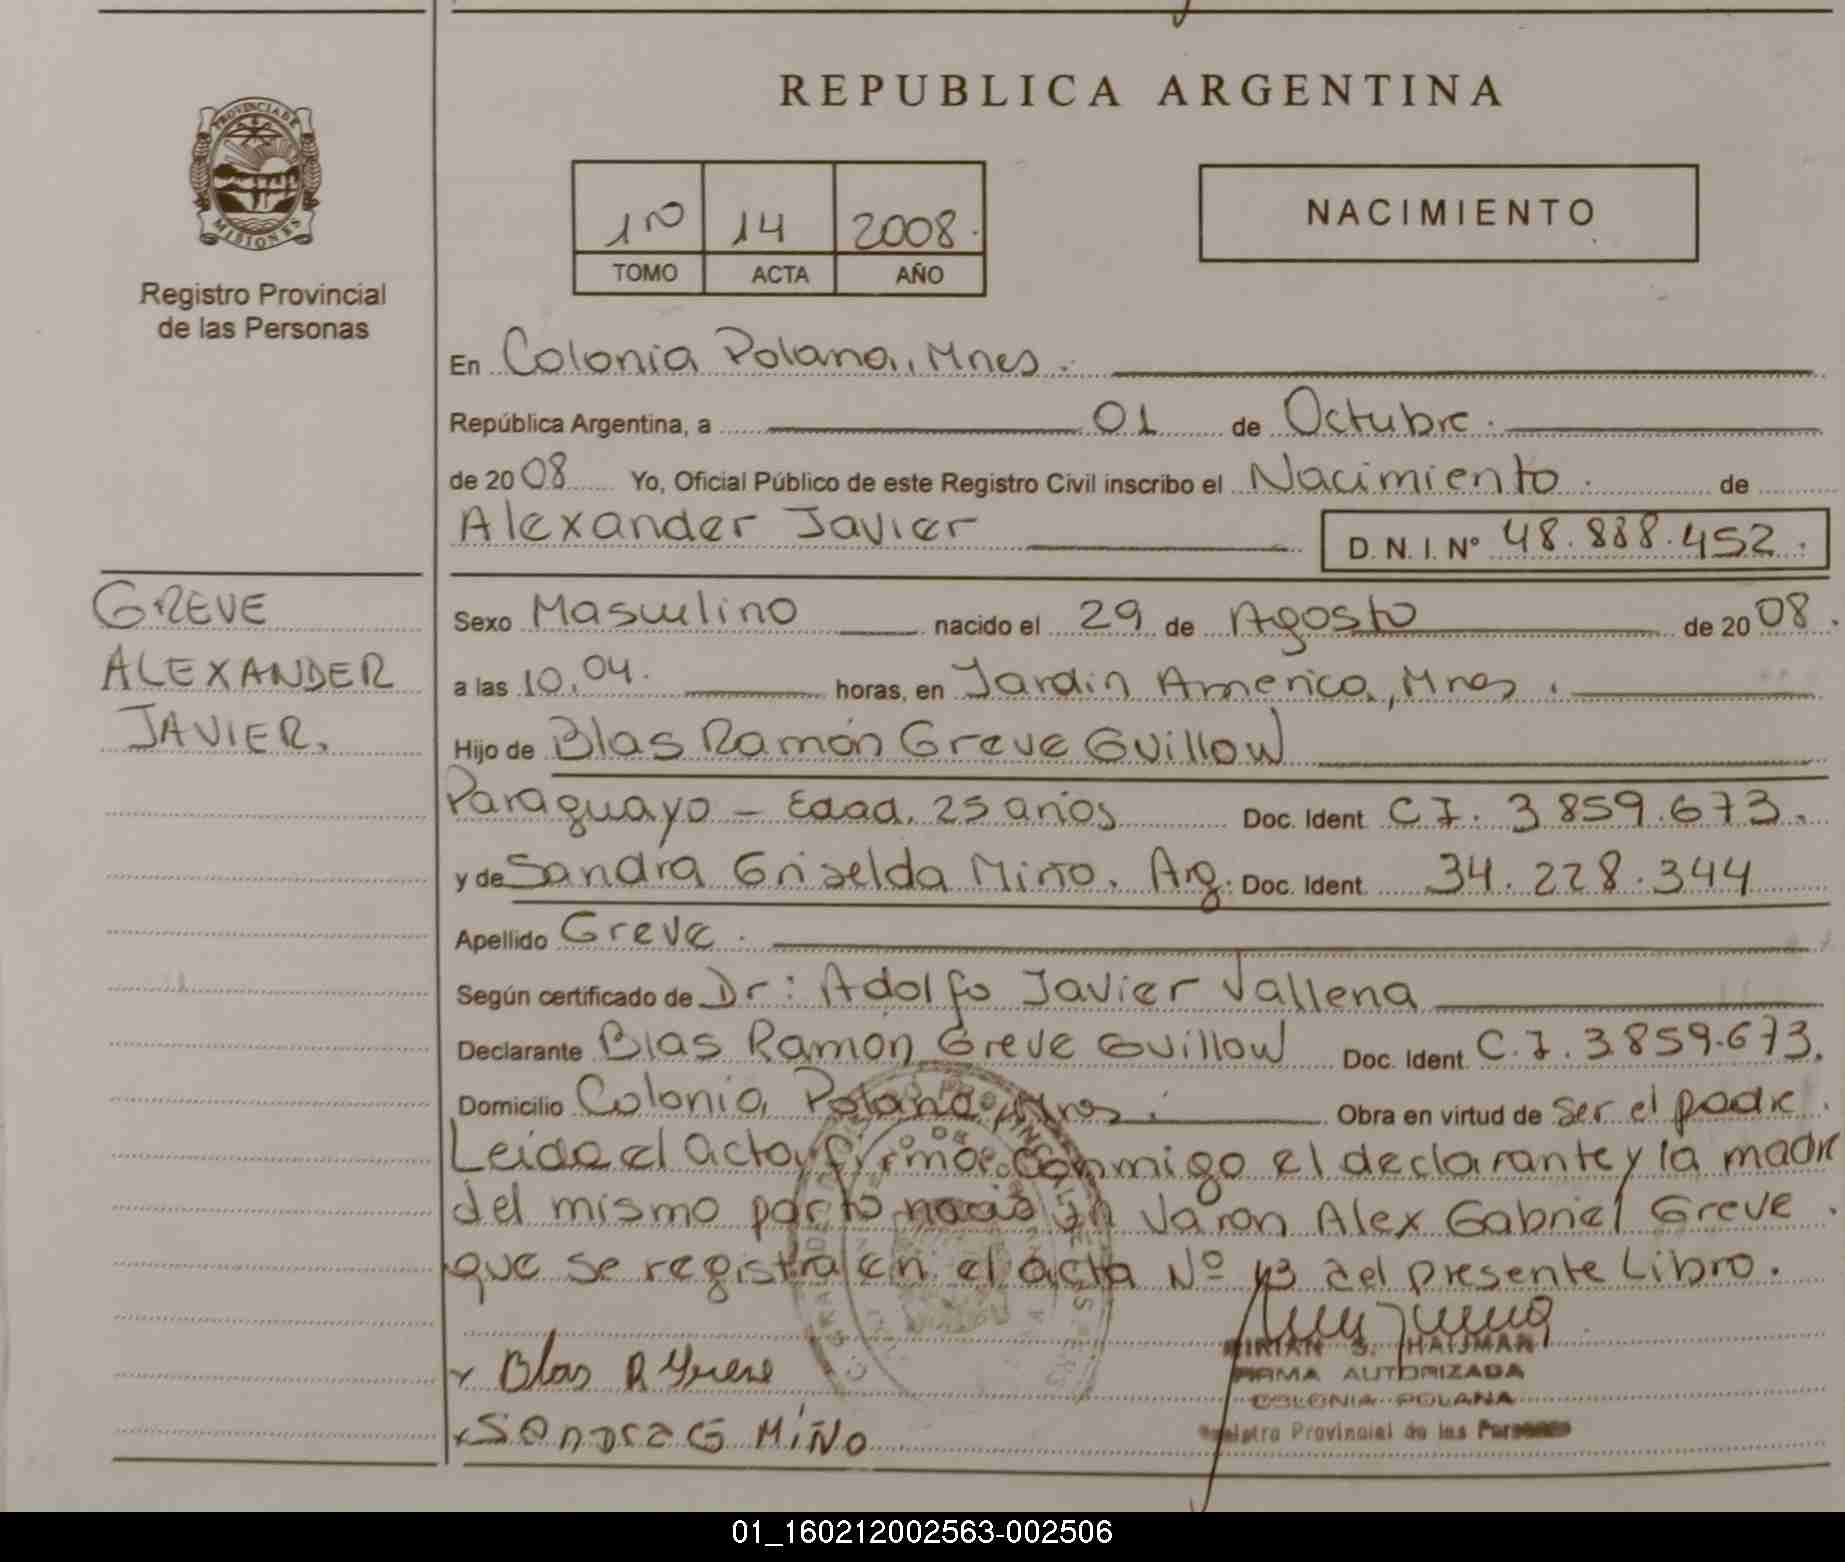 REPUBLICA ARGENTINA
PROVINCIA DE
MISIONES
Registro Provincial
de las Personas
1º 14 2008.
TOMO ACTA AÑO
NACIMIENTO
En Colonia Polana, Mnes.
República Argentina, a 01 de Octubre.
de 2008 Yo, Oficial Público de este Registro Civil inscribo el Nacimiento. de
Alexander Javier D. N. I. Nº 48.888.452.
GREVE
ALEXANDER
JAVIER.
Sexo Masculino nacido el 29 de Agosto de 2008.
a las 10,04. horas, en Jardin America, Mnes.
Hijo de Blas Ramón Greve Guillow
Paraguayo - Edad, 25 años Doc. Ident. C I. 3859.673.
y de Sandra Griselda Miño. Arg: Doc. Ident. 34.228.344
Apellido Greve.
Según certificado de Dr: Adolfo Javier Vallena
Declarante Blas Ramón Greve Guillow Doc. Ident. C.I. 3859.673.
Domicilio Colonia Polana, Mnes. Obra en virtud de ser el padre.
Leida el acta, firma conmigo el declarante y la madre
del mismo parto nació un varon Alex Gabriel Greve.
que se registra en el acta Nº 13 del presente Libro.
x Blas R Greve
x Sandra G Miño
MIRIAN S. HAUMAN
FIRMA AUTORIZADA
COLONIA POLANA
Registro Provincial de las Personas
01_160212002563-002506